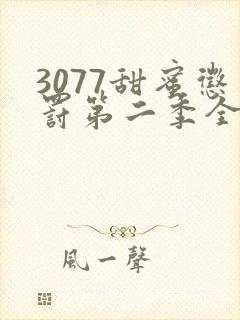 3077甜蜜懲
罰第二季全
風一聲